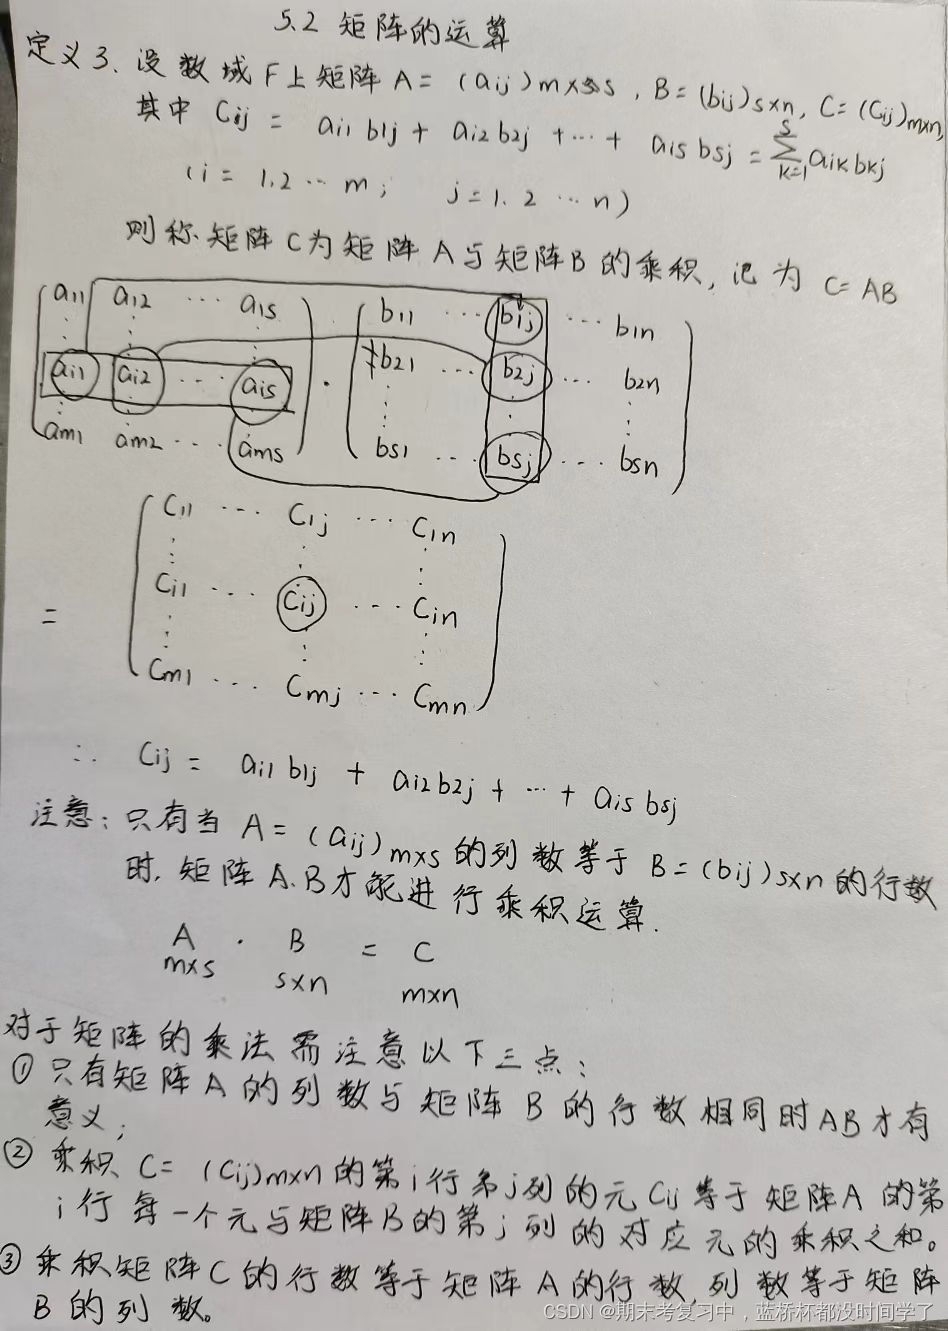 5.2 矩阵的运算
定义3. 设数域F上矩阵A = (aij)m×s, B=(bij)s×n, C=(Cij)m×n,
其中 Cij = ai1 b1j + ai2 b2j + ··· + ais bsj = ∑ˢₖ₌₁ aik bkj
(i = 1.2 ··· m; j = 1. 2 ··· n)
则称矩阵C为矩阵A与矩阵B的乘积, 记为 C=AB
a11 a12 ··· a1s b11 ··· b1j ··· b1n
ai1 ai2 ··· ais · b21 ··· b2j ··· b2n
am1 am2 ··· ams bs1 ··· bsj ··· bsn
C11 ··· C1j ··· C1n
= Ci1 ··· Cij ··· Cin
Cm1 ··· Cmj ··· Cmn
∴ Cij = ai1 b1j + ai2 b2j + ··· + ais bsj
注意: 只有当 A = (aij)m×s 的列数等于 B = (bij)s×n 的行数
时, 矩阵A.B才能进行乘积运算.
A · B = C
m×s s×n m×n
对于矩阵的乘法需注意以下三点:
① 只有矩阵A的列数与矩阵B的行数相同时AB才有
意义;
② 乘积 C= (Cij)m×n的第i行第j列的元Cij等于矩阵A的第
i行每一个元与矩阵B的第j列的对应元的乘积之和。
③ 乘积矩阵C的行数等于矩阵A的行数,列数等于矩阵
B的列数。
CSDN @期末考复习中，蓝桥杯都没时间学了